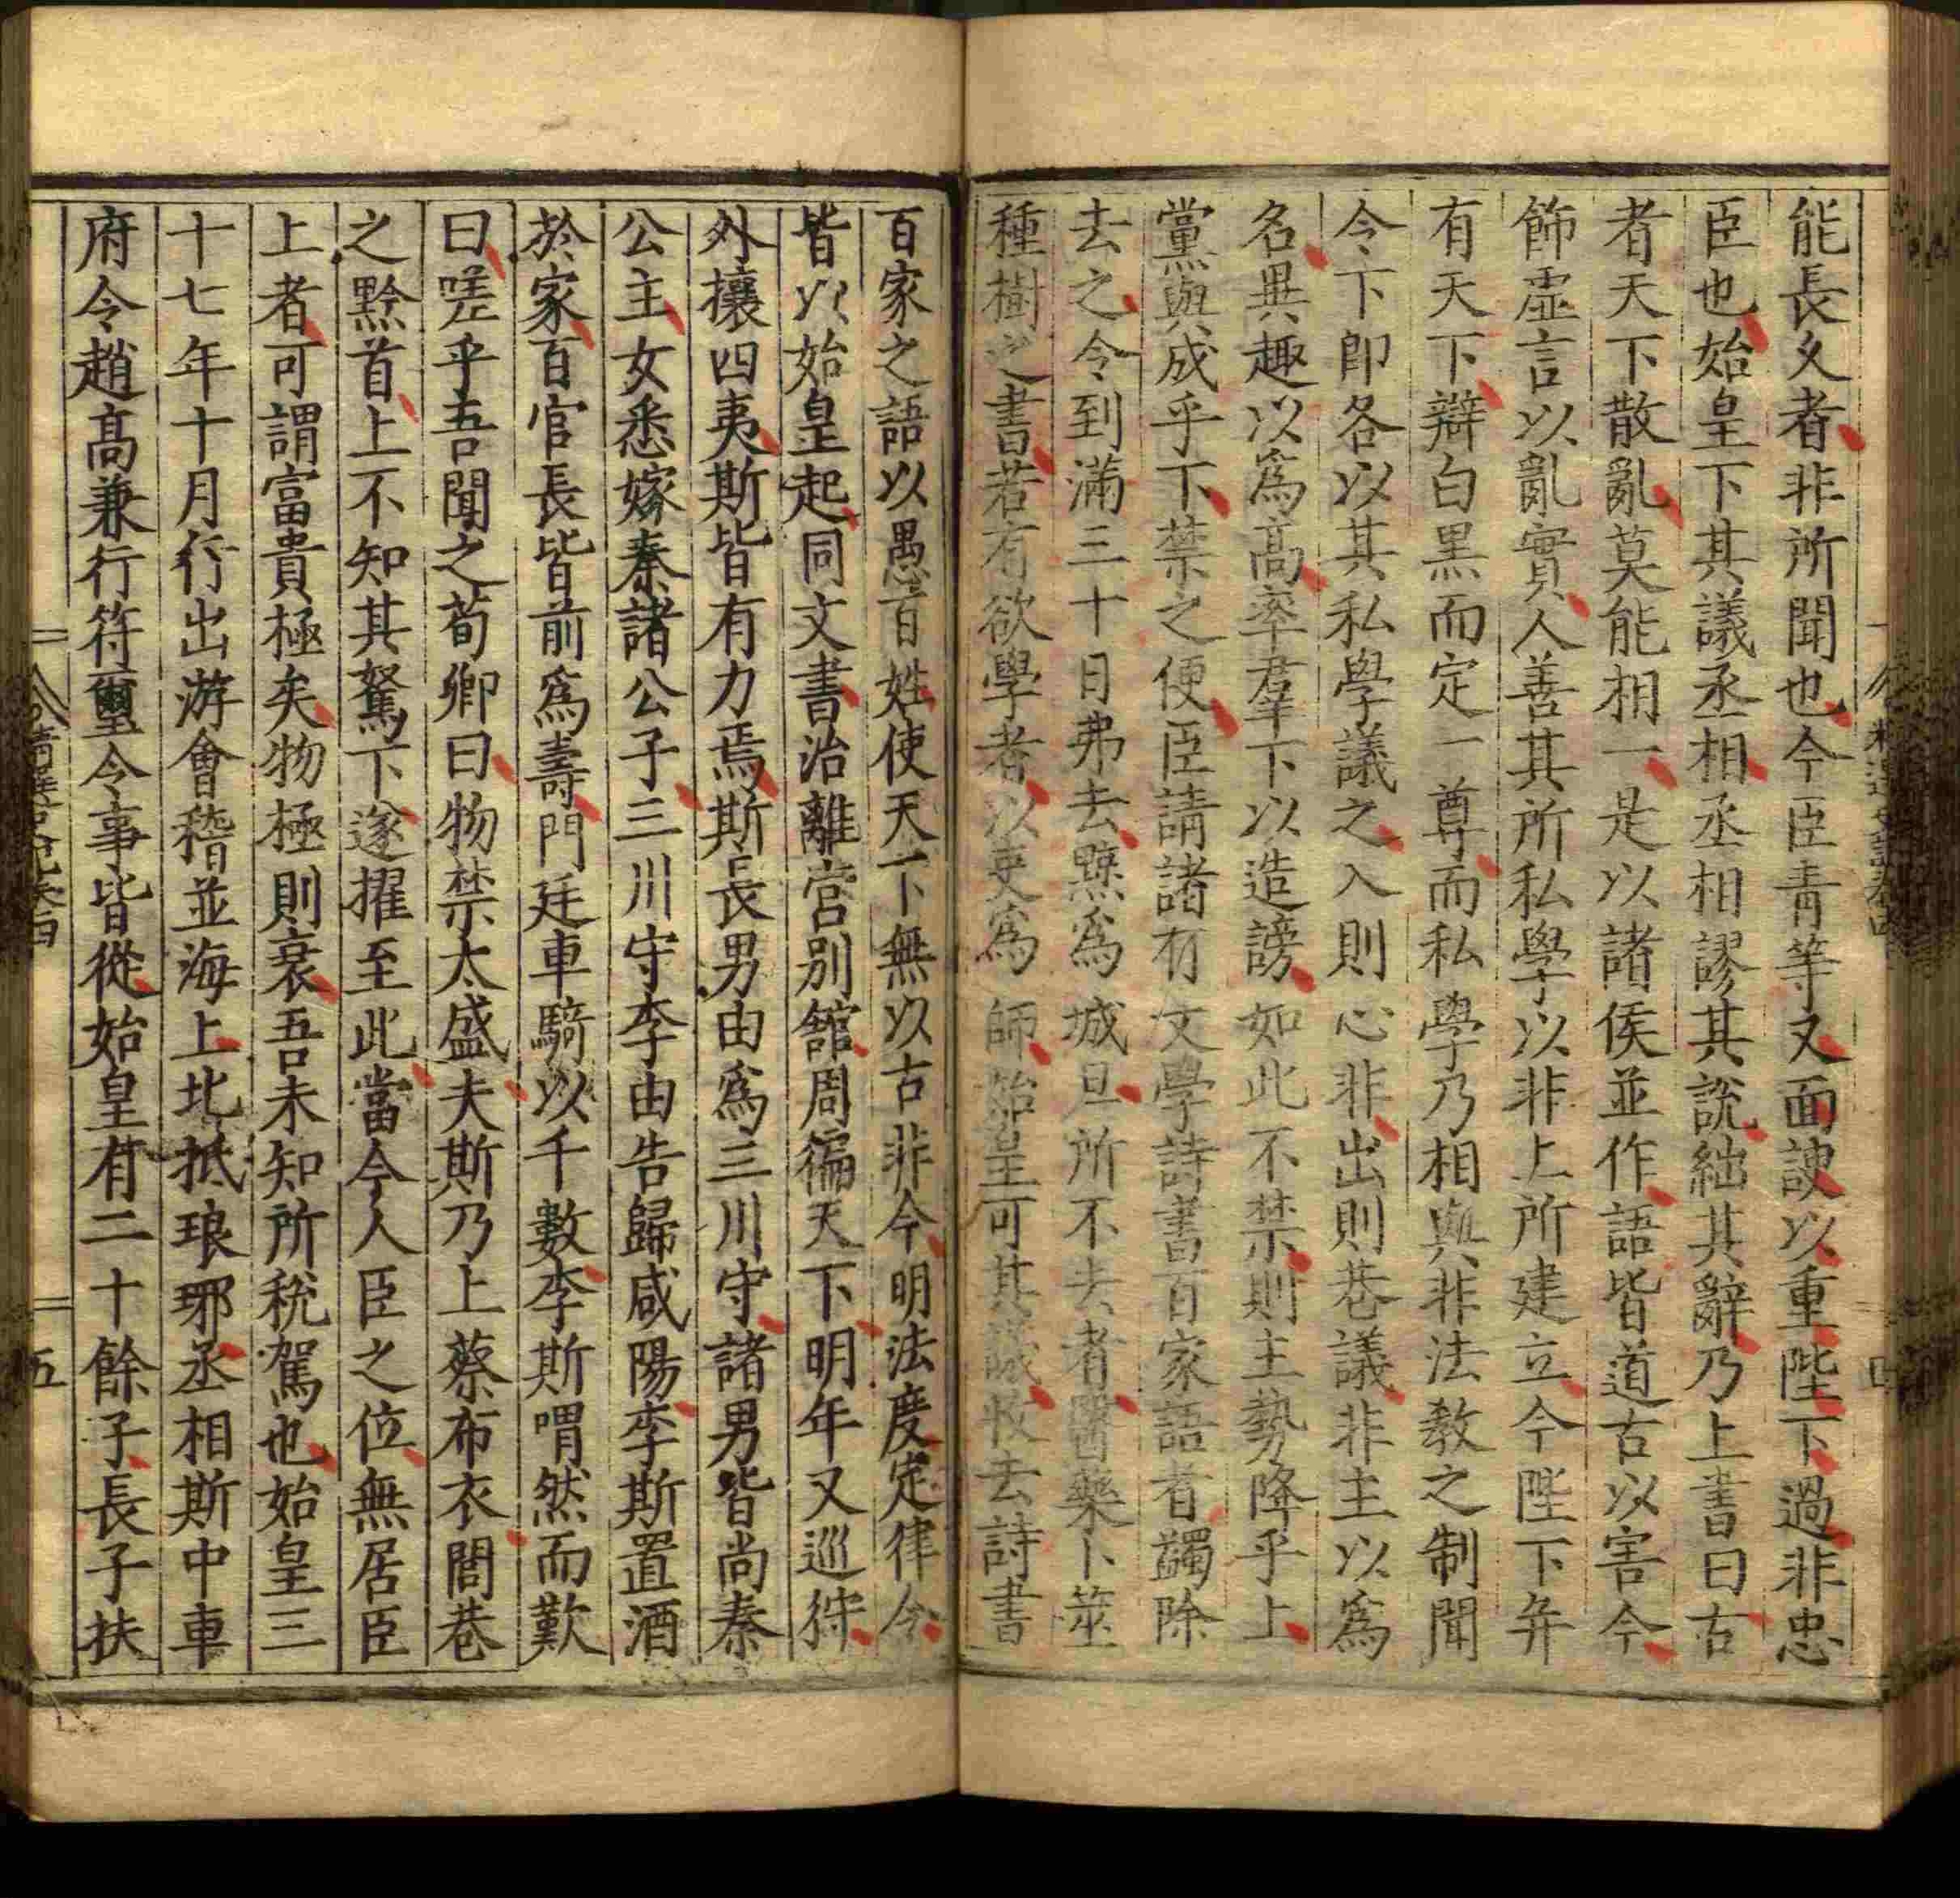 能長久者非所聞也今臣青等又面諛以重陛下過非忠
臣也始皇下其議丞相丞相謬其說絀其辭乃上書曰古
者天下散亂莫能相一是以諸侯並作語皆道古以害今
飾虛言以亂實人善其所私學以非上所建立今陛下并
有天下辯白黑而定一尊而私學乃相與非法教之制聞
令下即各以其私學議之入則心非出則巷議非主以爲
名異趣以爲高率羣下以造謗如此不禁則主勢降乎上
黨與成乎下禁之便臣請諸有文學詩書百家語者蠲除
去之令到滿三十日弗去黥爲城旦所不去者醫藥卜筮
種樹之書若有欲學者以吏爲師始皇可其議收去詩書
百家之語以愚百姓使天下無以古非今明法度定律令
皆以始皇起同文書治離宮別館周徧天下明年又巡狩
外攘四夷斯皆有力焉斯長男由爲三川守諸男皆尚秦
公主女悉嫁秦諸公子三川守李由告歸咸陽李斯置酒
於家百官長皆前爲壽門廷車騎以千數李斯喟然而歎
曰嗟乎吾聞之荀卿曰物禁太盛夫斯乃上蔡布衣閭巷
之黔首上不知其駑下遂擢至此當今人臣之位無居臣
上者可謂富貴極矣物極則衰吾未知所稅駕也始皇三
十七年十月行出游會稽並海上北抵琅邪丞相斯中車
府令趙高兼行符璽令事皆從始皇有二十餘子長子扶
五